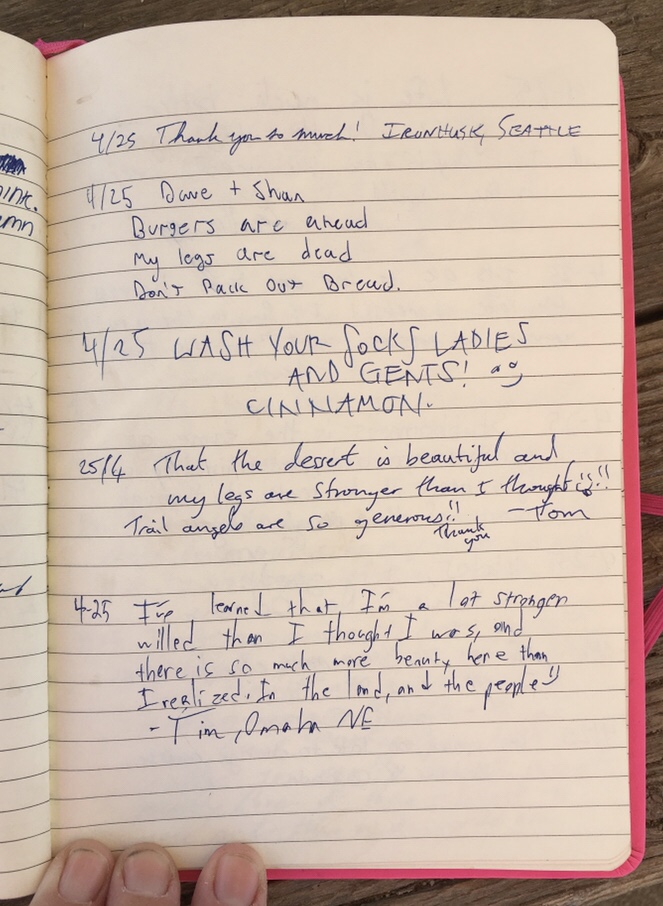 4/25 Thank you so much! IRONHUSK, SEATTLE
4/25 Dave + Shan
Burgers are ahead
My legs are dead
Don't Pack Out Bread.
4/25 WASH YOUR SOCKS LADIES
AND GENTS!
CINNAMON.
25/4 That the dessert is beautiful and
my legs are stronger than I thought!!!
Trail angels are so generous!! -Tom
Thank
you
4-25 I've learned that I'm a lot stronger
willed than I thought I was, and
there is so much more beauty here than
I realized. In the land, and the people!!
- Tim, Omaha NE